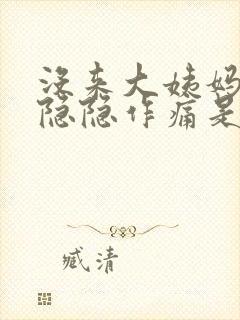 没来大姨妈
隐隐作痛是
臧清